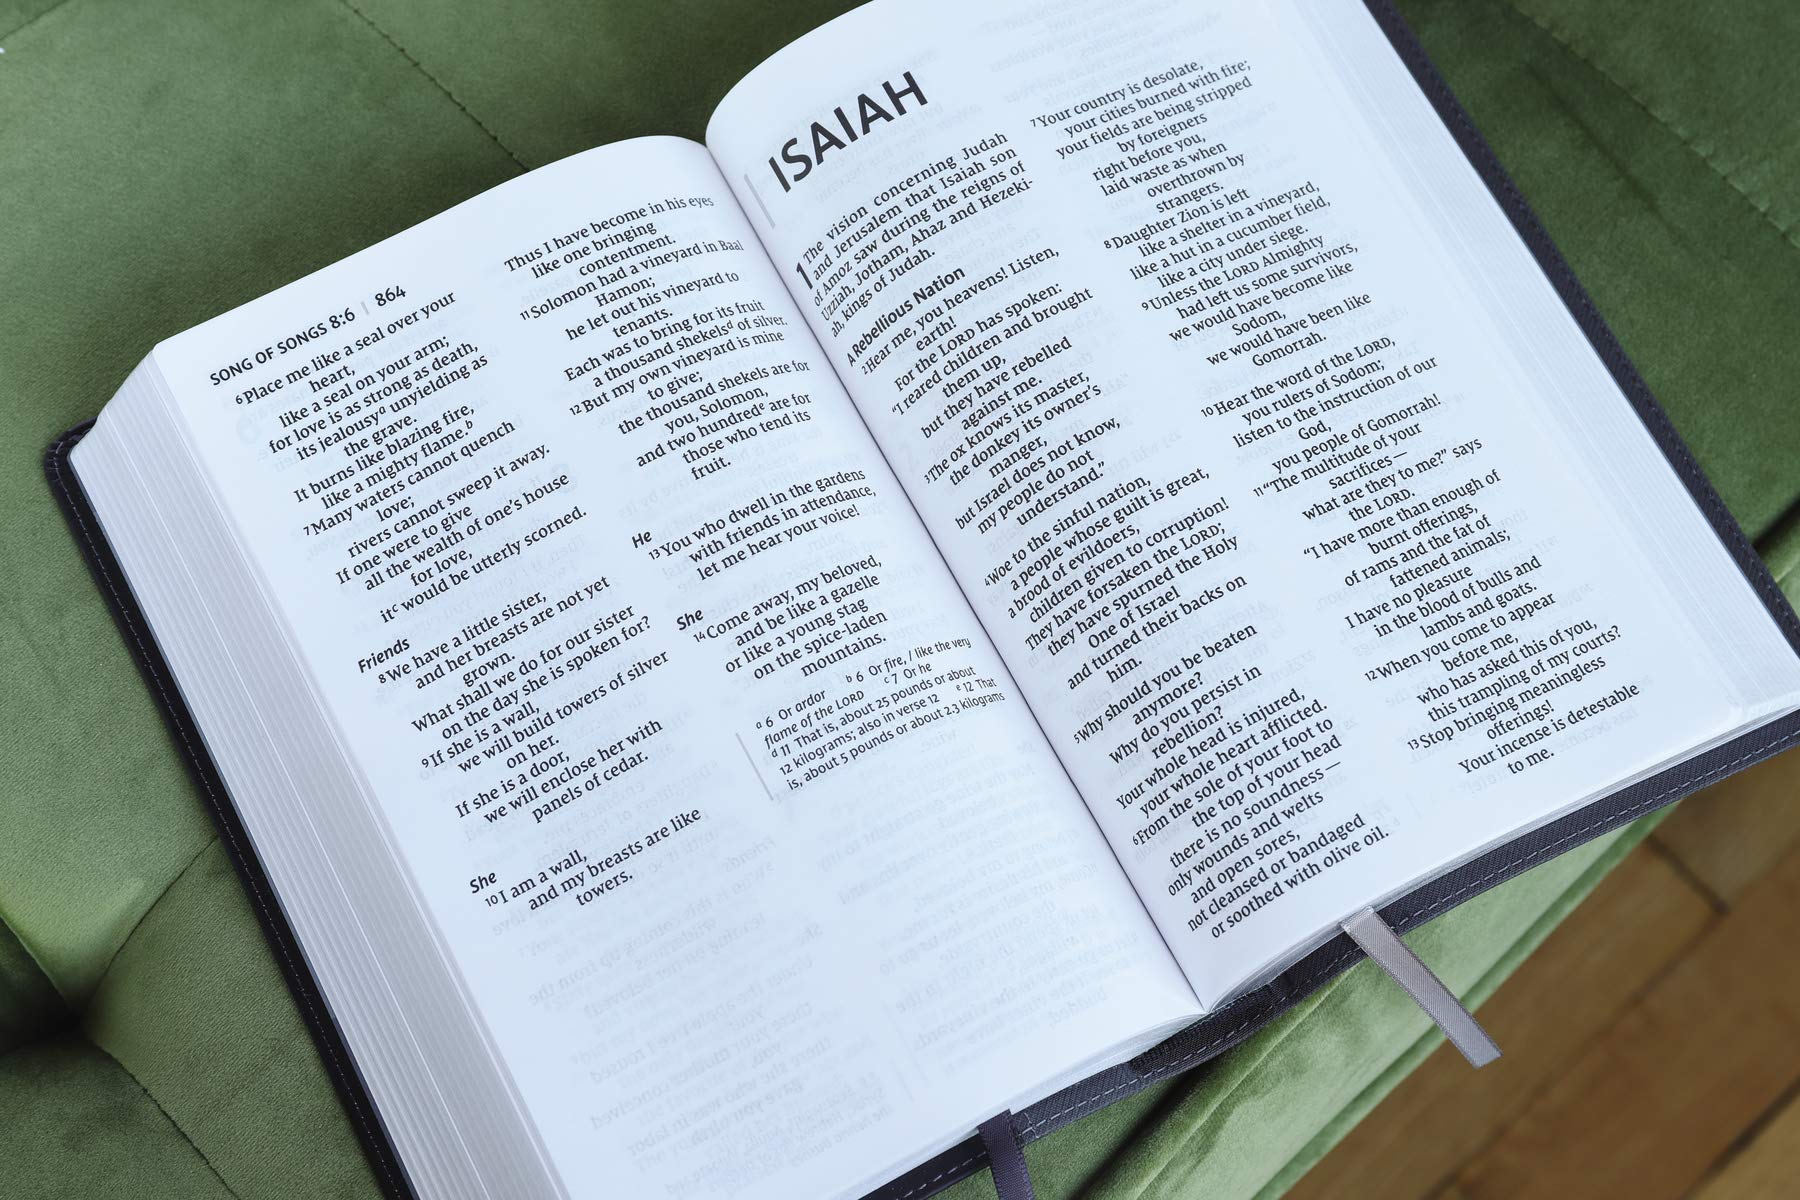 SONG OF SONGS 8:6 | 864
6 Place me like a seal over your
heart,
like a seal on your arm;
for love is as strong as death,
its jealousy a unyielding as
the grave.
It burns like blazing fire,
like a mighty flame. b
7 Many waters cannot quench
love;
rivers cannot sweep it away.
If one were to give
all the wealth of one's house
for love,
it c would be utterly scorned.
Friends
8 We have a little sister,
and her breasts are not yet
grown.
What shall we do for our sister
on the day she is spoken for?
9 If she is a wall,
we will build towers of silver
on her.
If she is a door,
we will enclose her with
panels of cedar.
She
10 I am a wall,
and my breasts are like
towers.
Thus I have become in his eyes
like one bringing
contentment.
11 Solomon had a vineyard in Baal
Hamon;
he let out his vineyard to
tenants.
Each was to bring for its fruit
a thousand shekels d of silver.
12 But my own vineyard is mine
to give;
the thousand shekels are for
you, Solomon,
and two hundred e are for
those who tend its
fruit.
He
13 You who dwell in the gardens
with friends in attendance,
let me hear your voice!
She
14 Come away, my beloved,
and be like a gazelle
or like a young stag
on the spice-laden
mountains.
a 6 Or ardor b 6 Or fire, / like the very
flame of the LORD c 7 Or he
d 11 That is, about 25 pounds or about
12 kilograms; also in verse 12 e 12 That
is, about 5 pounds or about 2.3 kilograms
ISAIAH
1 The vision concerning Judah
and Jerusalem that Isaiah son
of Amoz saw during the reigns of
Uzziah, Jotham, Ahaz and Hezeki-
ah, kings of Judah.
A Rebellious Nation
2 Hear me, you heavens! Listen,
earth!
For the LORD has spoken:
"I reared children and brought
them up,
but they have rebelled
against me.
3 The ox knows its master,
the donkey its owner's
manger,
but Israel does not know,
my people do not
understand."
4 Woe to the sinful nation,
a people whose guilt is great,
a brood of evildoers,
children given to corruption!
They have forsaken the LORD;
they have spurned the Holy
One of Israel
and turned their backs on
him.
5 Why should you be beaten
anymore?
Why do you persist in
rebellion?
Your whole head is injured,
your whole heart afflicted.
6 From the sole of your foot to
the top of your head
there is no soundness—
only wounds and welts
and open sores,
not cleansed or bandaged
or soothed with olive oil.
7 Your country is desolate,
your cities burned with fire;
your fields are being stripped
by foreigners
right before you,
laid waste as when
overthrown by
strangers.
8 Daughter Zion is left
like a shelter in a vineyard,
like a hut in a cucumber field,
like a city under siege.
9 Unless the LORD Almighty
had left us some survivors,
we would have become like
Sodom,
we would have been like
Gomorrah.
10 Hear the word of the LORD,
you rulers of Sodom;
listen to the instruction of our
God,
you people of Gomorrah!
11 "The multitude of your
sacrifices—
what are they to me?" says
the LORD.
"I have more than enough of
burnt offerings,
of rams and the fat of
fattened animals;
I have no pleasure
in the blood of bulls and
lambs and goats.
12 When you come to appear
before me,
who has asked this of you,
this trampling of my courts?
13 Stop bringing meaningless
offerings!
Your incense is detestable
to me.